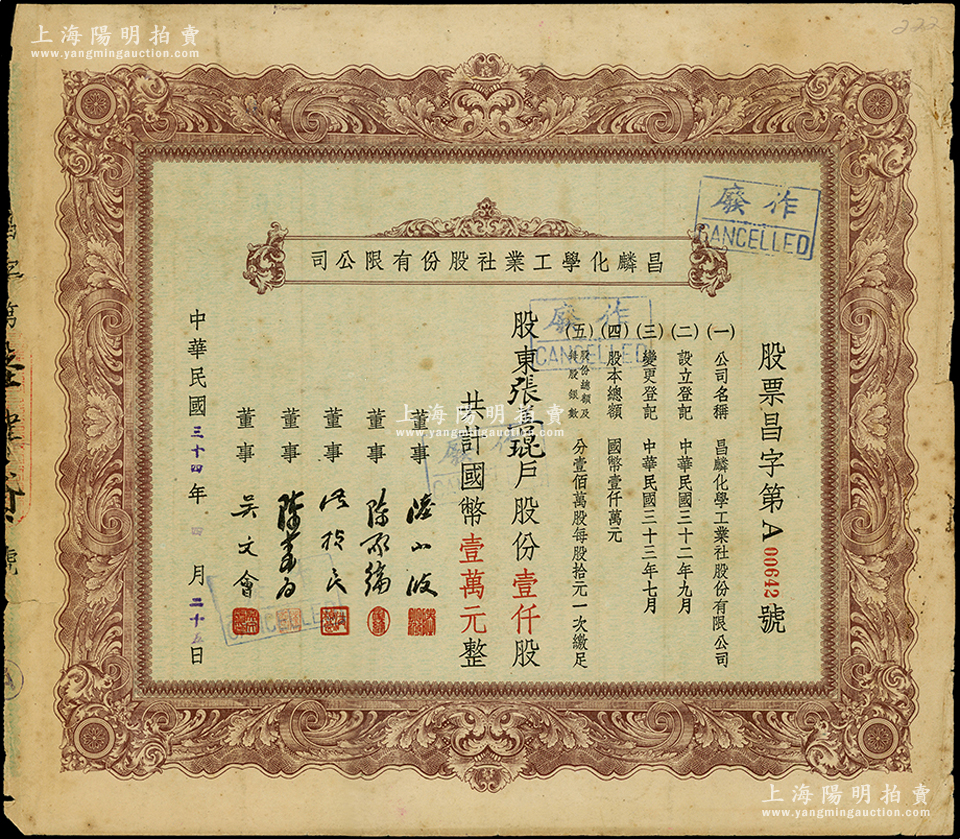 上海陽明拍賣
www.yangmingauction.com
222
作廢
CANCELLED
昌麟化學工業社股份有限公司
股票昌字第A00642號
(一)公司名稱 昌麟化學工業社股份有限公司
(二)設立登記 中華民國三十二年九月
(三)變更登記 中華民國三十三年七月
(四)股本總額 國幣壹仟萬元
(五)股份總額及每股銀數 分壹佰萬股每股拾元一次繳足
作廢
CANCELLED
股東張壹琨戶股份壹仟股
共計國幣壹萬元整
上海陽明拍賣
www.yangmingauction.com
作廢
CANCELLED
董事
董事
董事
董事
董事 吴文會
CANCELLED
中華民國三十四年四月二十五日
字第
號
上海陽明拍賣
www.yangmingauction.com
上海陽明拍賣
www.yangmingauction.com